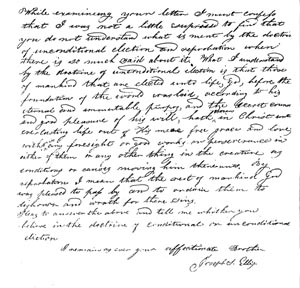 While examining your letter I must confess
that I was not a little surprised to find that
you do not understand what is ment by the doctrin
of unconditional election and reprobation when
there is so much said about it. What I understand
by the doctrine of unconditional election is that those
of mankind that are elected unto life, God before the
foundations of the world was laid, according to his
eternal and immutable purpos, and the secret council
and good pleasure of his will, hath chosen in Christ unto
everlasting life out of His mere free grace and love
without any foresight or good works, or perseverance in
either of them or any other thing in the creature as
conditions or causes moving him thereunto. By
reprobation I mean that the rest of mankind God
was pleased to pass by and to ordain them to
dishonor and wrath for there sins.
to answer the above and tell me whether you
believe in the doctrine of conditional or unconditional
election
I remain as ever your affectionate Brother
Joseph S. Ellis